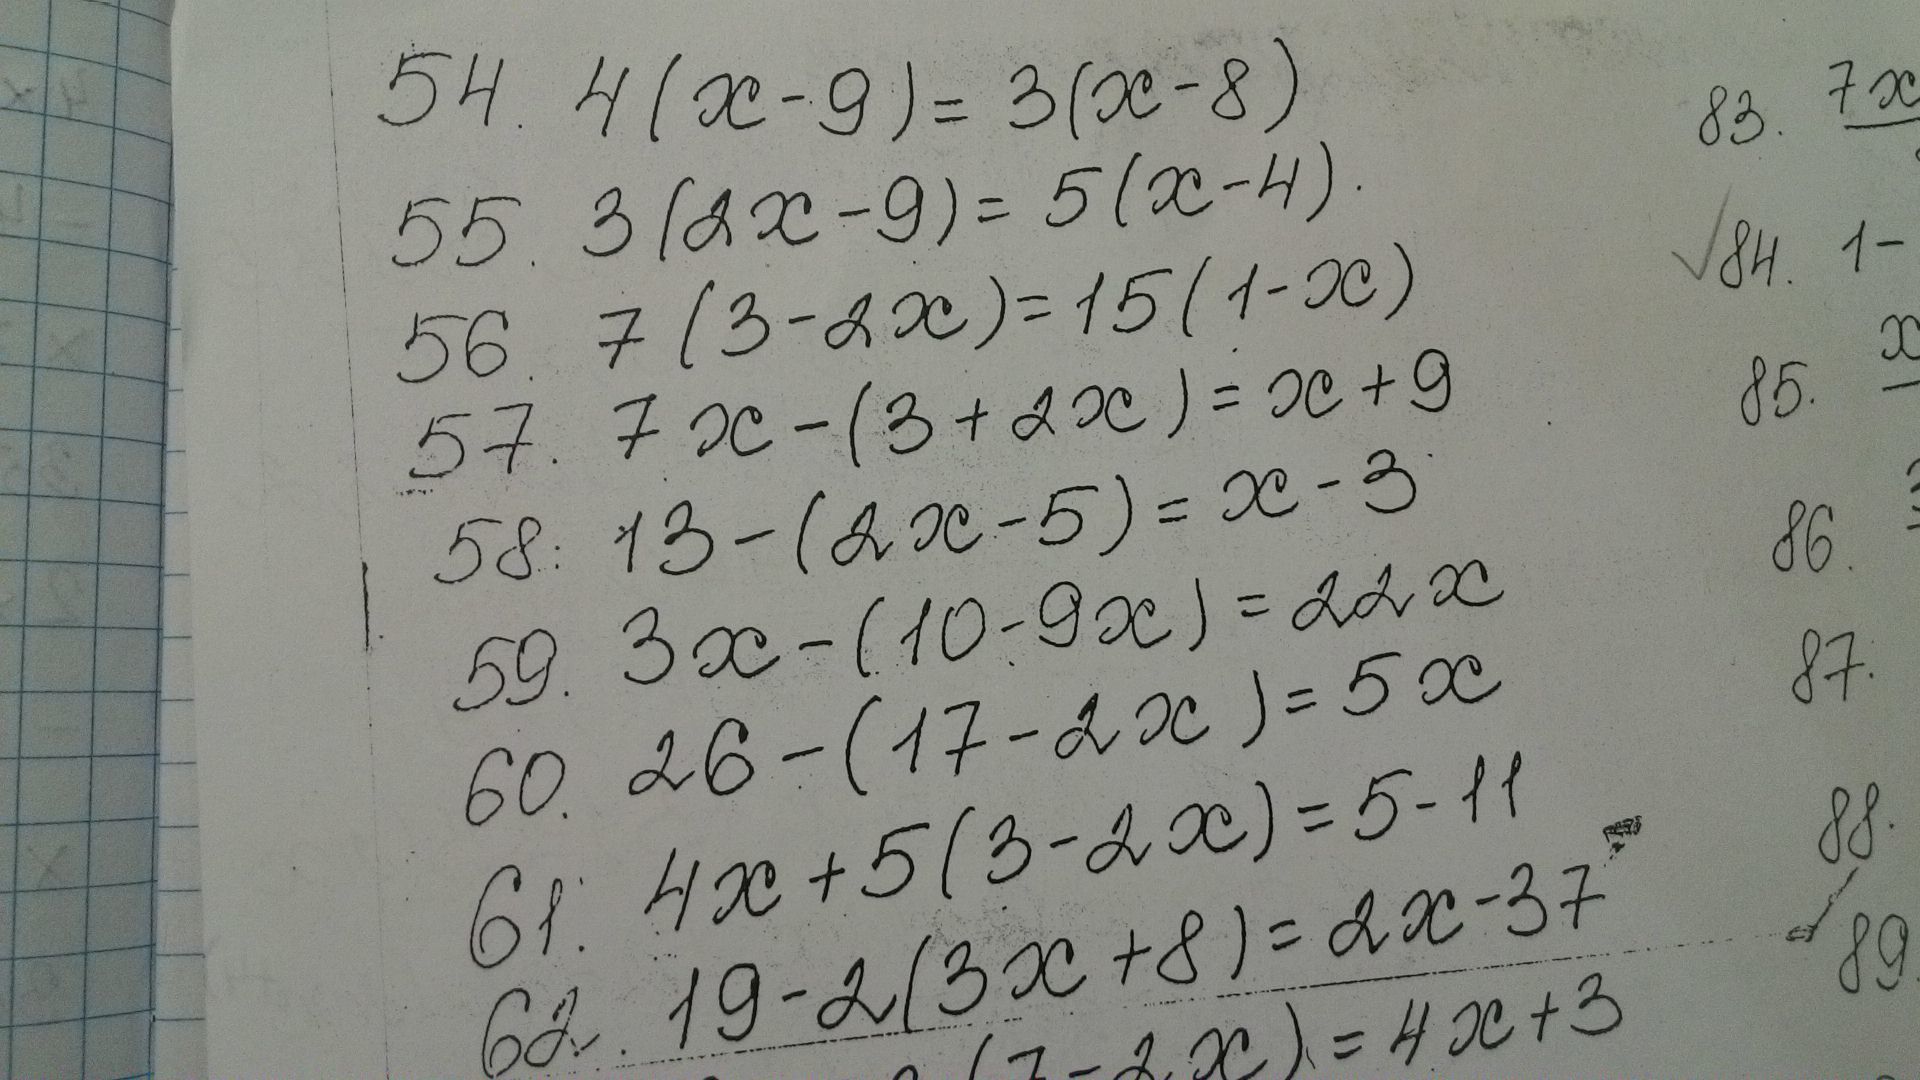 54. 4(x-9)=3(x-8)
55. 3(2x-9)=5(x-4).
56. 7(3-2x)=15(1-x)
57. 7x-(3+2x)=x+9
58. 13-(2x-5)=x-3
59. 3x-(10-9x)=22x
60. 26-(17-2x)=5x
61. 4x+5(3-2x)=5-11
62. 19-2(3x+8)=2x-37
(7-2x)=4x+3
83. 7x
84. 1-
85. x
86.
87.
88.
89.